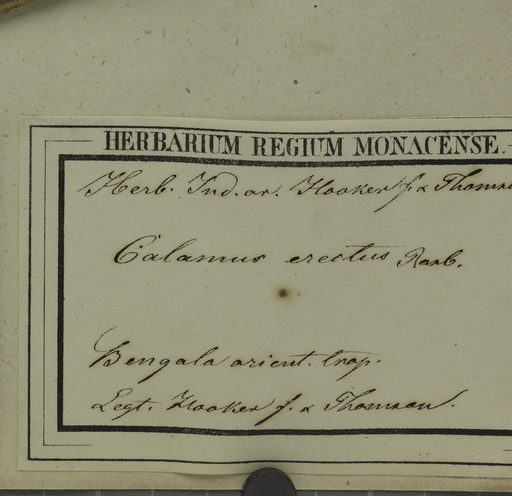 HERBARIUM REGIUM MONACENSE.
Herb. Ind. or. Hooker f. & Thomso
Calamus erectus Roxb.
Bengala orient. trop.
Legt. Hooker f. & Thomson.